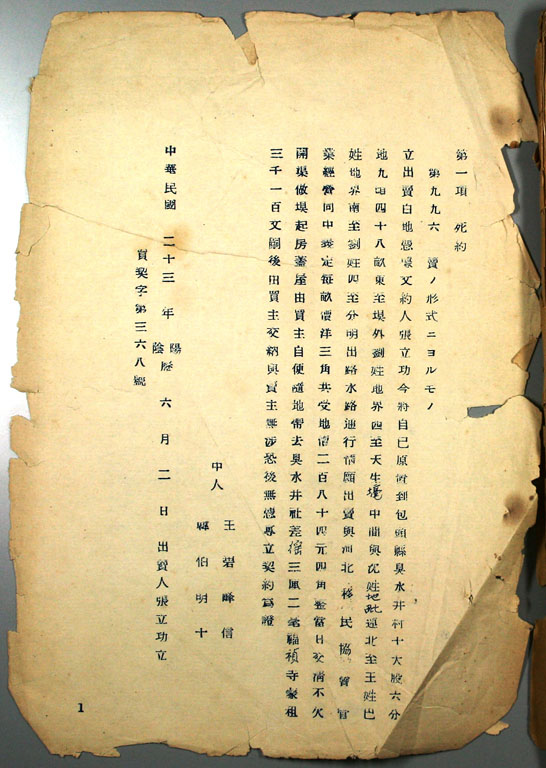 第一項 死約
第九九六 賣ノ形式ニヨルモノ
立出賣白地憑據文約人張立功今將自已原南到包頭縣臭水井村十大股六分
地九頃四十八畝東至壕外劉姓地界西至天生壕中間與沈姓地毗連北至王姓巴
姓地界南至劉姓四至分明出路水路通行情願出賣與河北移民協會官
業經營同中議定每畝價洋三角共受地價二百八十四元四角整當日交清不欠
開渠做壕起房蓋屋由買主自便隨地帶去臭水井社差徭三厘二毫福禎寺蒙租
三千一百文嗣後由買主交納與賣主無涉恐後無憑專立契約為證
中人 王碧峰 信
縣伯明 十
中華民國 二十三 年 陽陰歷 六 月 二 日 出賣人張立功立
買契字第三六八號
1